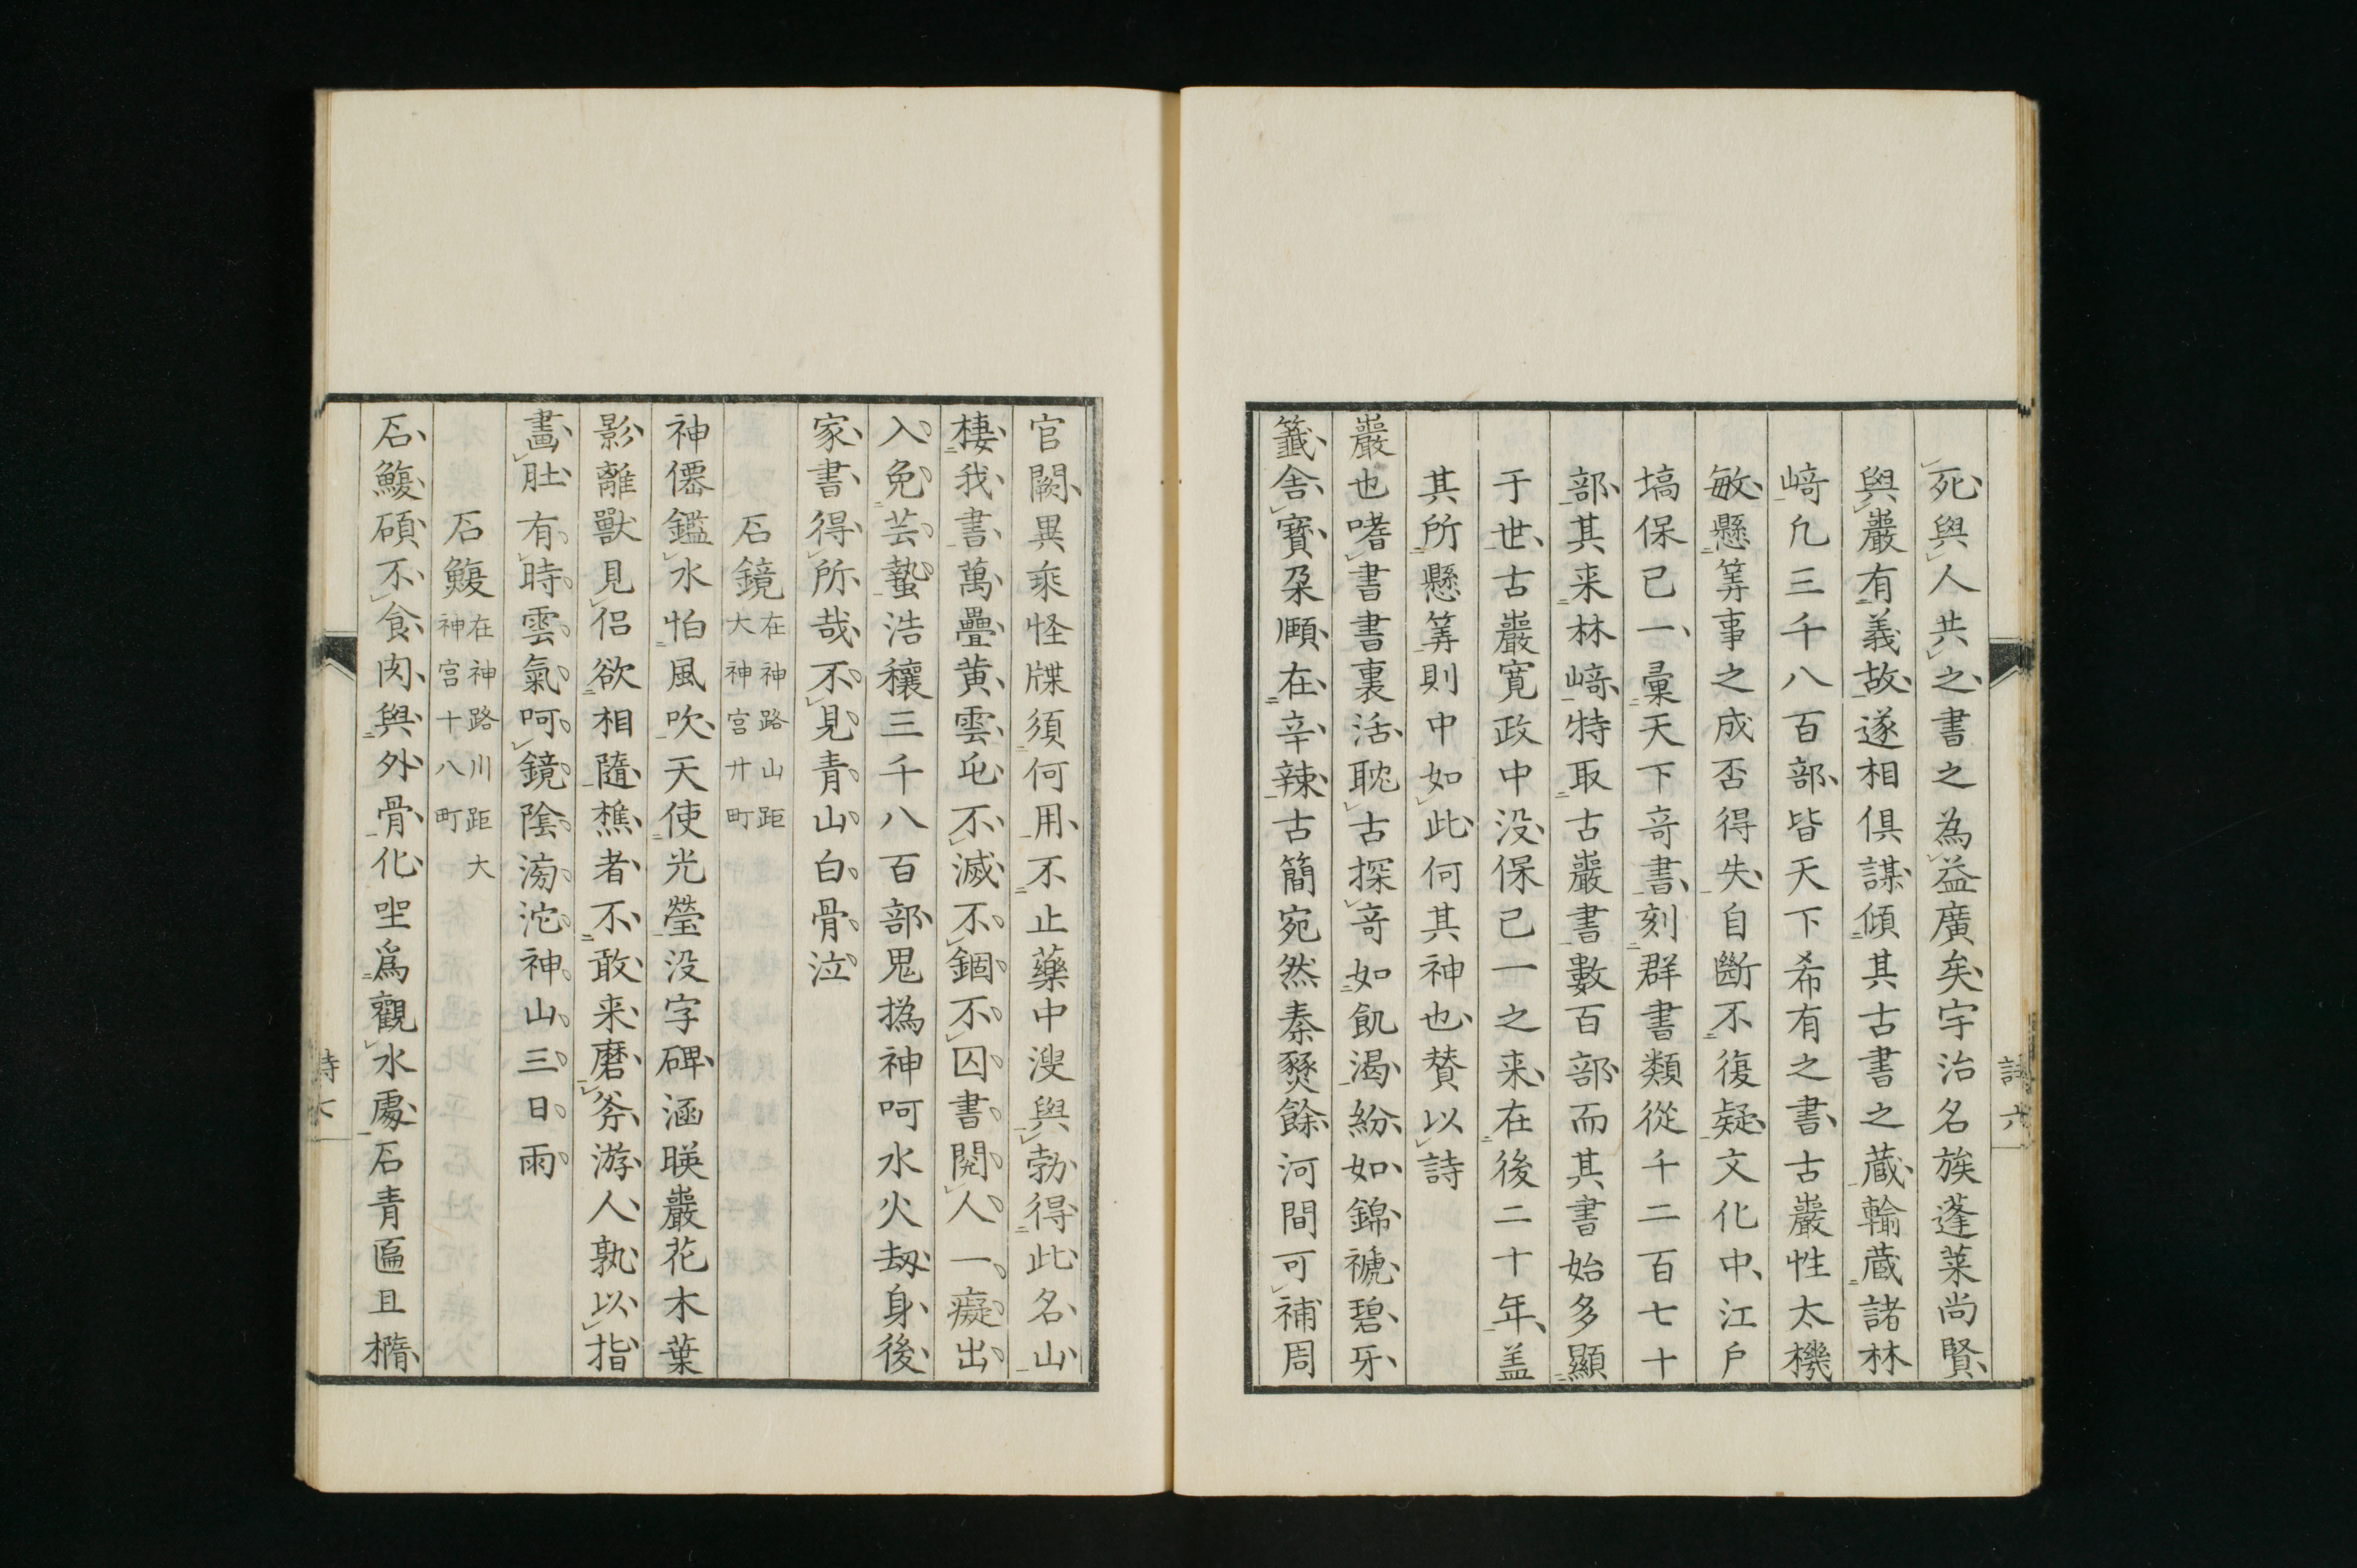 死與人共之書之為益廣矣宇治名族蓬莱尚賢
與巖有義故遂相俱謀傾其古書之蔵輸蔵諸林
﨑凢三千八百部皆天下希有之書古巖性太機
敏懸筭事之成否得失自斷不復疑文化中江戶
塙保已一彙天下竒書刻群書類從千二百七十
部其来林﨑特取古巖書數百部而其書始多顯
于世古巖寛政中没保己一之来在後二十年盖
其所懸筭則中如此何其神也賛以詩
巖也嗜書書裏活耽古探竒如飢渇紛如錦褫碧牙
籤舎寳朶頤在辛辣古簡宛然秦燹餘河間可補周
詩 六
官闕異乘怪牒須何用不止藥中溲與勃得此名山
棲我書萬疊黄雲屯不滅不錮不囚書閱人一癡出
入免芸蟄浩穰三千八百部鬼撝神呵水火劫身後
家書得所哉不見青山白骨泣
石鏡 在神路山距
大神宮廾町
神僊鑑水怕風吹天使光瑩没字碑涵暎巖花木葉
影離獸見侶欲相隨樵者不敢来磨斧游人孰以指
畫肚有時雲氣呵鏡陰滂沱神山三日雨
石鰒 在神路川距大
神宮十八町
石鰒碩不食肉與外骨化坐爲觀水處石青匾且橢